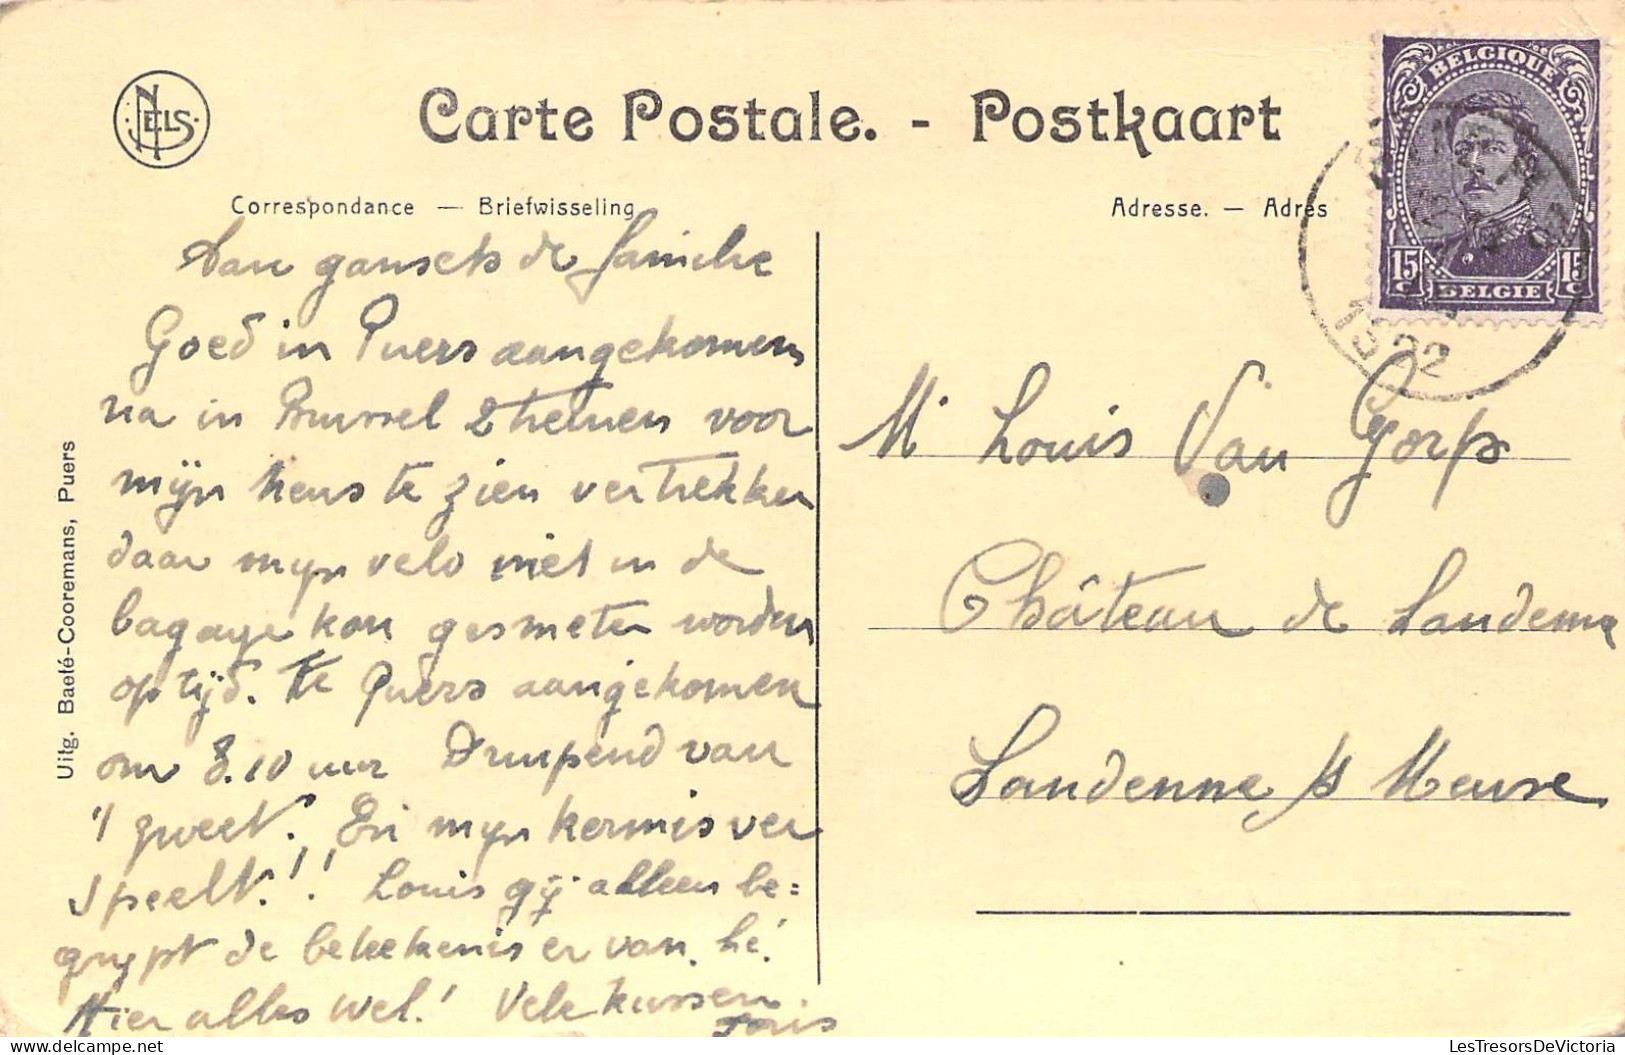 NELS
Carte Postale. - Postkaart
Correspondance — Briefwisseling
Adresse. — Adres
BELGIQUE
15 c 15 c
BELGIE
1922
Aan gansch de familie
Goed in Puers aangekomen
na in Brussel 2 treinen voor
mijn neus te zien vertrekken
daar mijn velo niet in de
bagage kon gesmeten worden
op tijd. Te Puers aangekomen
om 8.10 uur Druipend van
't zweet. En mijn kermis ver
speelt!! Louis gij alleen be=
grypt de beteekenis er van, hé!
Hier alles wel! Vele kussen.
Joris
Mr Louis Van Gorp
Château de Landenne
Landenne s/ Meuse
Uitg. Baeté-Cooremans, Puers
LesTresorsDeVictoria